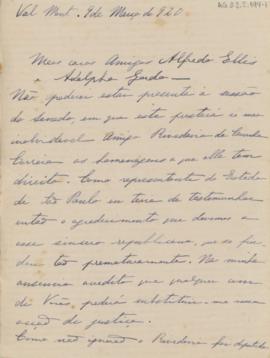 AG 02.2.197-1
Val Mont. 9 de Março de 920
Meus caros Amigos Alfredo Ellis
e Adolpho Gordo
Não poderei estar presente á sessão
do Senado, em que este prestará ao meu
inolvidavel Amigo Rivadavia da Cunha
Correia as homenagens a que elle tem
direito. Como representante do Estado
de São Paulo eu teria de testemunhar
então o agradecimento que devemos a
esse sincero republicano, que se per
deu tão prematuramente. Na minha
ausencia acredito que qualquer um
de Vocês, poderá substituir-me nesse
acto de justiça.
Como não ignoram o Rivadavia foi deputado